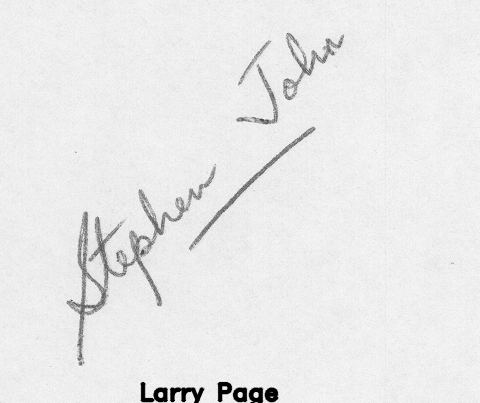 Stephen John
Larry Page